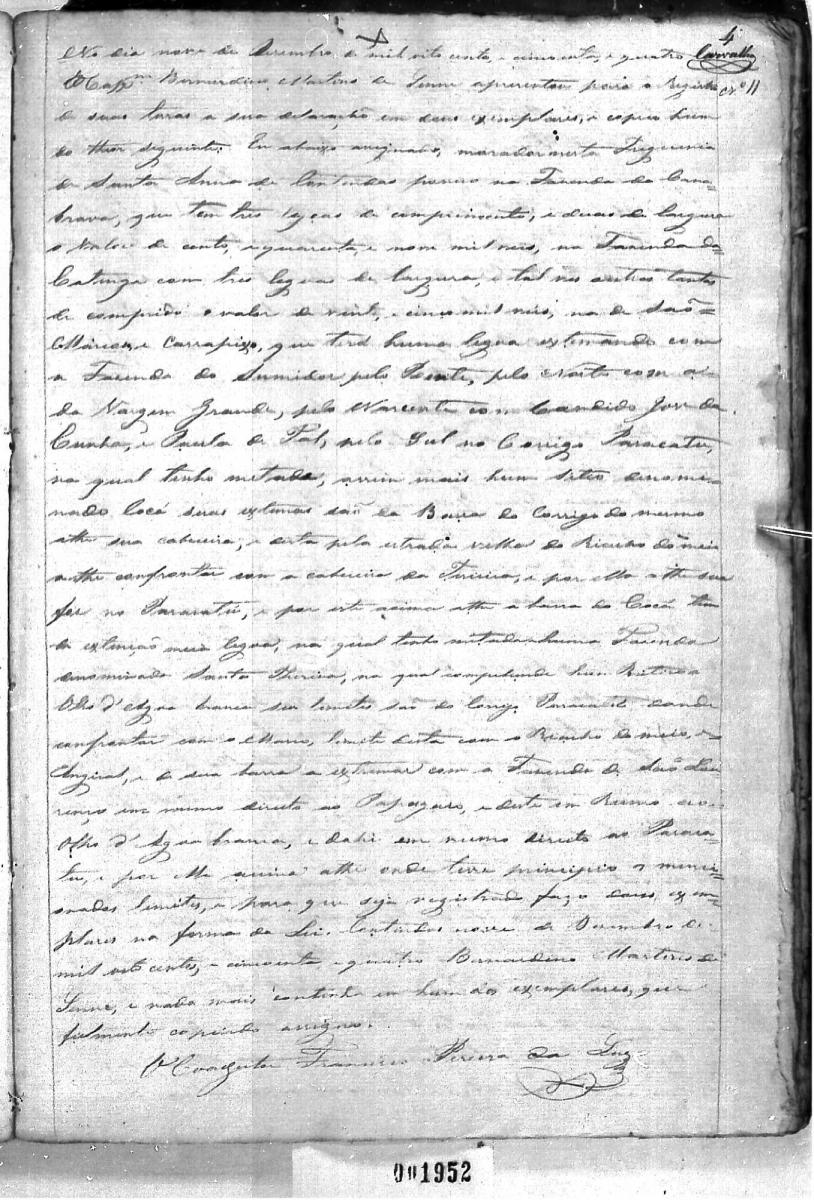 4
Carvalho
No dia nove de Dezembro de mil oito centos, e cincoenta, e quatro
Bernardino Martins de Senne aprezentou para o Registro
nº 11
de suas terras a sua declaração em dous exemplares, e copiei hum
do theor seguinte: Eu abaixo assignado, morador nesta Freguezia
de Santa Anna de Contendas possuo na Fazenda da Cana-
brava, que tem tres legoas de comprimento, e duas de largura
o valor de cento, e quarenta, e nove mil reis, na Fazenda da
Catinga com tres legoas de largura, e tal vez outras tantas
de comprido o valor de vinte, e cinco mil reis, na de São-
Marcos, e Carrapixo, que terá huma legoa extremando com
a Fazenda do Sumidor pelo Poente, pelo Norte com a
da Vargem Grande, pelo Nascente com Candido José da
Cunha, e Paula de Tal, pelo Sul no Corrigo Paracatu,
na qual tenho metade, assim mais hum Sitio denomi-
nado Cocá suas extremas são da Barra do Corrigo do mesmo
athe sua cabeceira, e desta pela estrada velha do Riacho do meio
athe confrontar com a cabeceira da Tiririca, e por ella athe sua
foz no Paracatú, e por este acima athe a barra do Cocá tem
de extenção meia legoa, na qual tenho metade e huma Fazenda
denominada Santa Thereza, na qual comprehende hum Retiro
Olho d'Agoa branca seus limites são do Corrigo Paracatú donde
confrontar com o Morro, limite desta com o Riacho do meio, e
Angical, e de sua barra a extremar com a Fazenda de São Lou
renço em rumo direito ao Papagaio, e deste em Rumo ao
Olho d'Agoa branca, e dahi em rumo direito ao Paraca-
tu, e por elle acima athe onde teve principio os menci-
onados limites, e para que seja registrado faço dous exem-
plares na forma da Lei. Contendas nove de Dezembro de
mil oito centos, e cincoenta e quatro Bernardino Martins de
Senne, e nada mais continha em hum dos exemplares, que
fielmente copiado assigno.
O Coadjutor Francisco Pereira da Luz
001952